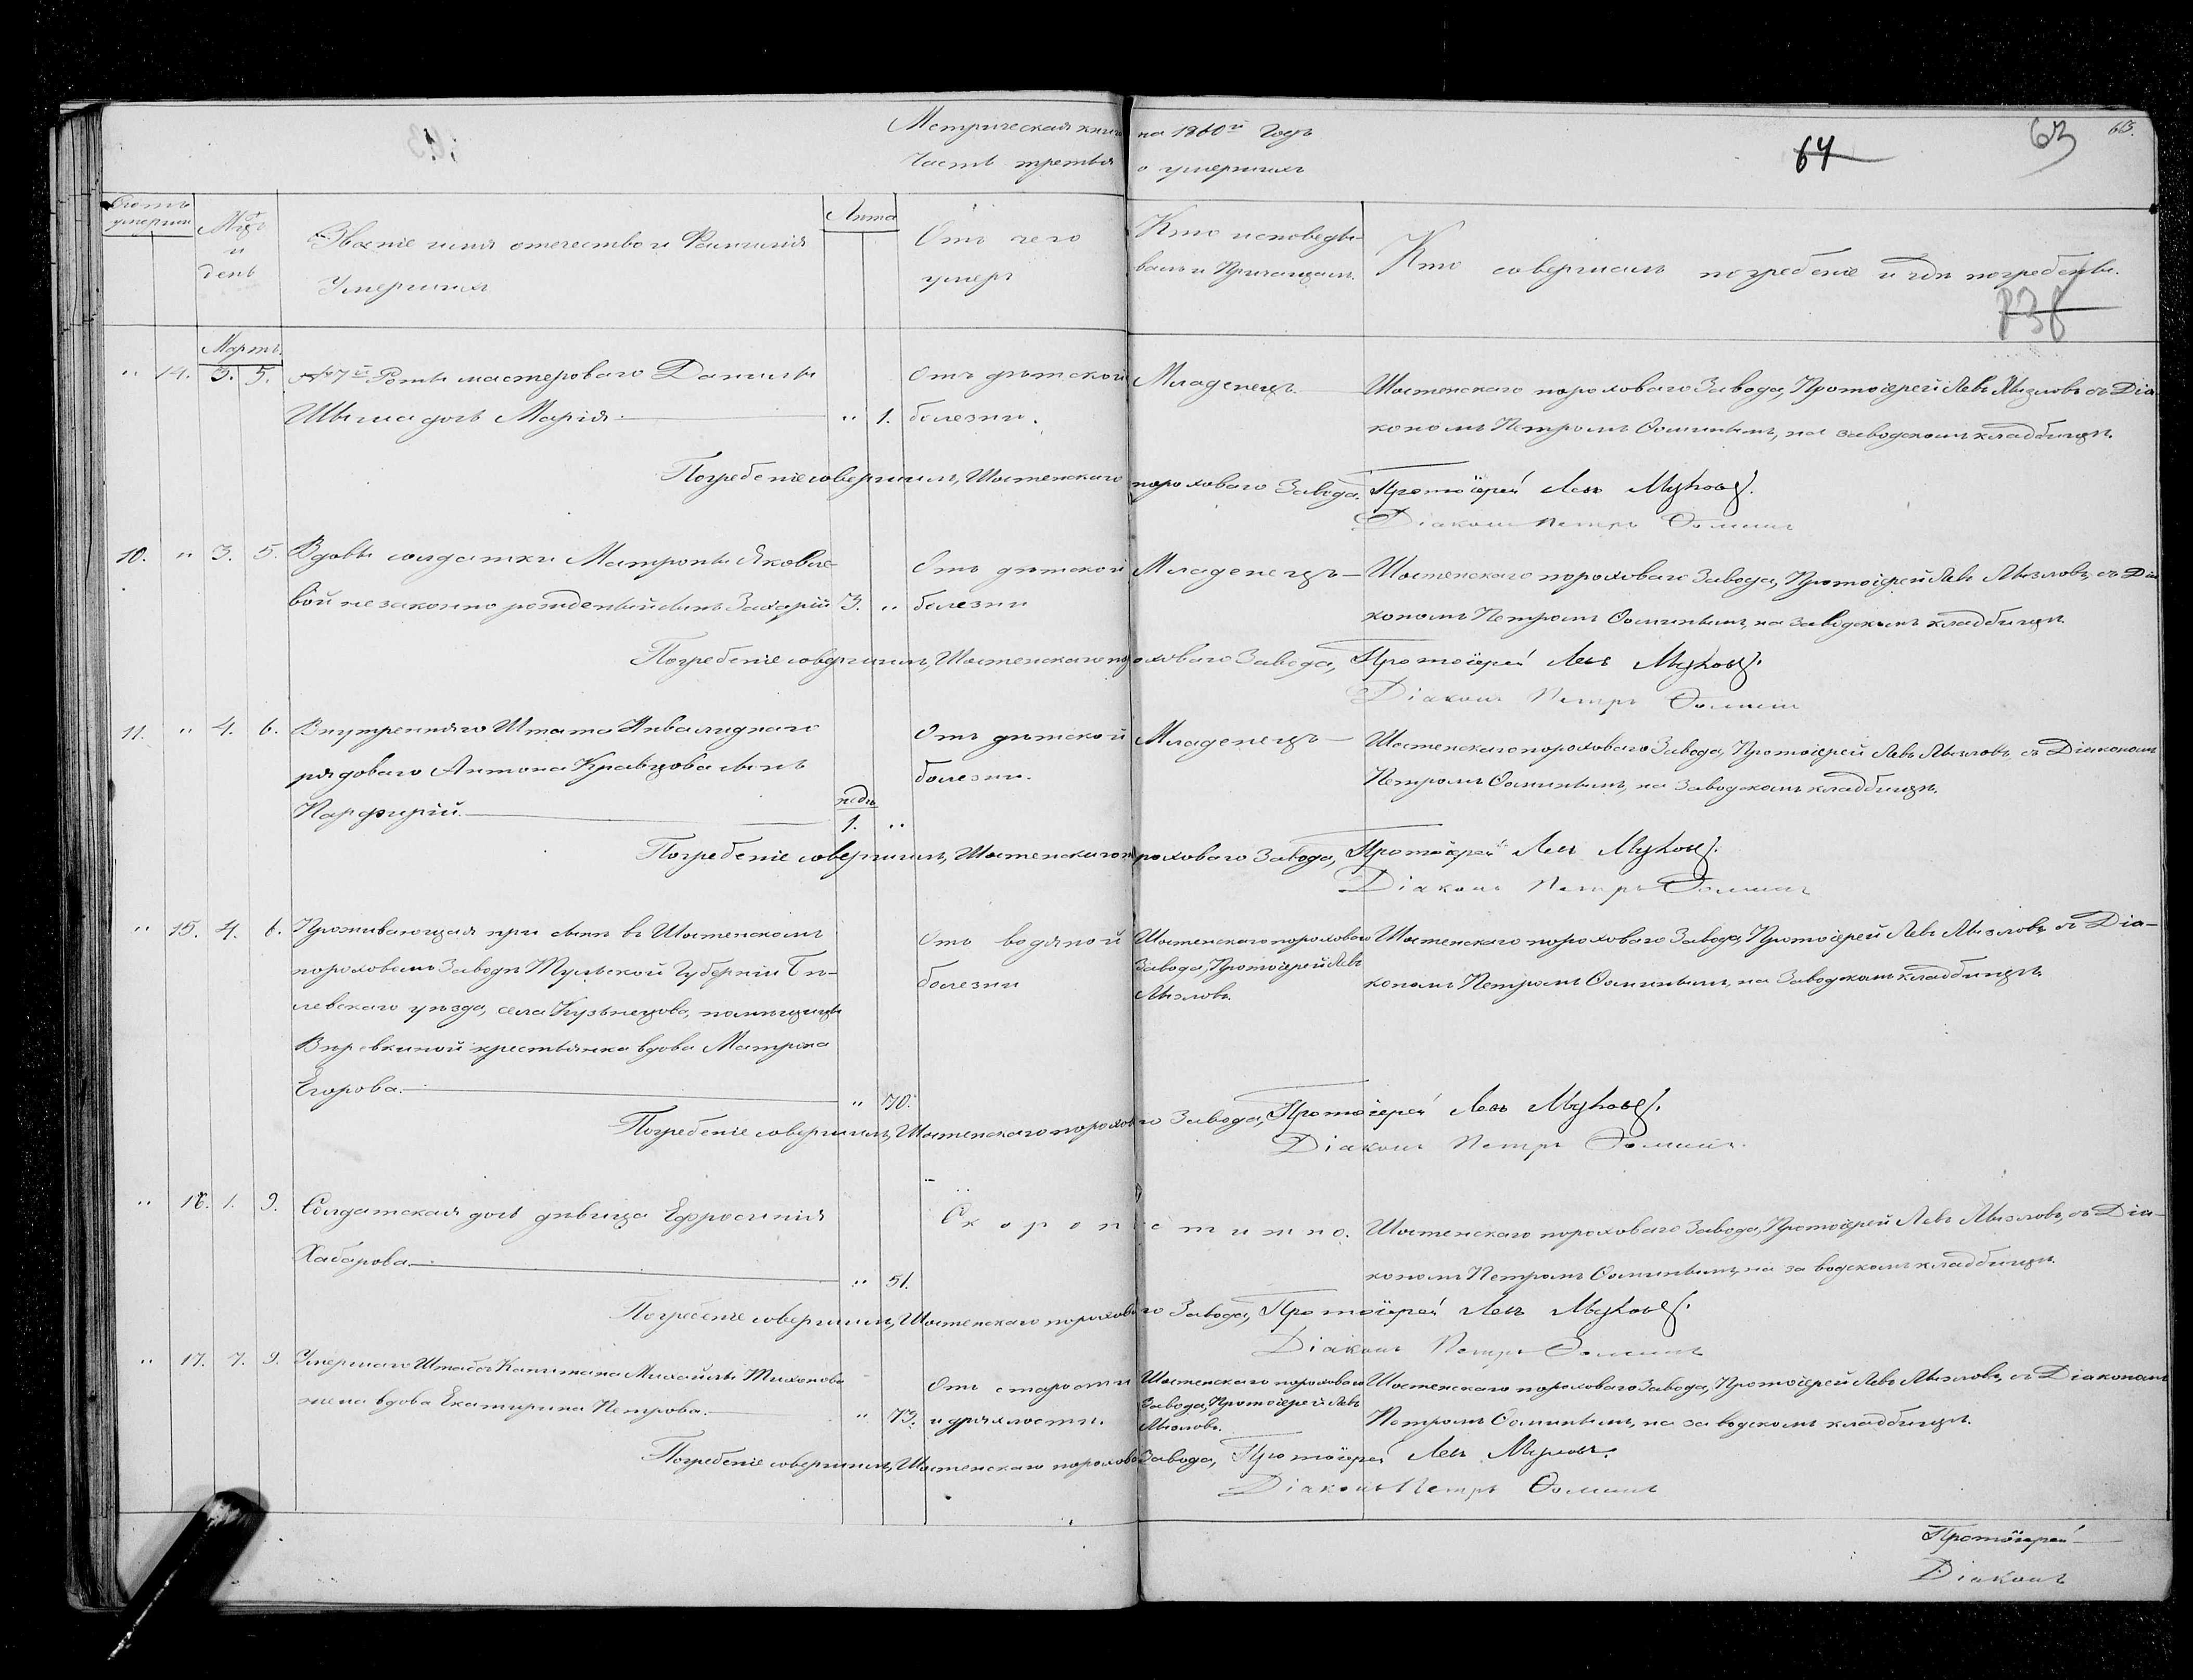 Метрическая книга на 1860й Годъ
Часть третья о умершихъ
64
63
63.
Счетъ умершихъ
Мцъ и день
Званіе имя отечество и Фамилія Умершихъ
Лета
Отъ чего умеръ
Кто исповеды-
валъ и Причащалъ.
Кто совершалъ погребеніе и гдѣ погребены.
Мартъ.
" 14. 3. 5. №7й Роты мастероваго Данилы
Швыма дочь Марія " 1.
Отъ дѣтской
болезни.
Младенецъ
Шостенскаго пороховаго Завода, Протоіерей Левъ Мызловъ съ Діа-
кономъ Петромъ Ѳоминымъ, на заводскомъ кладбищѣ.
Погребеніе совершилъ, Шостенскаго пороховаго Завода, Протоіерей Левъ Мызловъ.
Діаконъ Петръ Ѳоминъ
10. " 3. 5. Вдовы солдатки Матроны Яковле-
вой незаконно рожденный сынъ Захарій 3. "
Отъ дѣтской
болезни
Младенецъ
Шостенскаго пороховаго Завода, Протоіерей Левъ Мызловъ, съ Діа
кономъ Петромъ Ѳоминымъ, на заводскомъ кладбищѣ
Погребеніе совершилъ, Шостенскаго пороховаго Завода, Протоіерей Левъ Мызловъ.
Діаконъ Петръ Ѳоминъ
11. " 4. 6. Внутренняго Штата Инвалиднаго
рядоваго Антона Кравцова сынъ
Парфирій.
недѣ
1. "
Отъ дѣтской
болезни.
Младенецъ
Шостенскаго пороховаго Завода, Протоіерей Левъ Мызловъ, съ Діакономъ
Петромъ Ѳоминымъ, на Заводскомъ кладбищѣ.
Погребеніе совершилъ, Шостенскаго пороховаго Завода, Протоіерей Левъ Мызловъ.
Діаконъ Петръ Ѳоминъ
" 15. 4. 6. Проживающая при сынѣ въ Шостенскомъ
пороховомъ Заводѣ Тульской Губерніи Бѣ-
левскаго уѣзда, села Кузнецова, помѣщицы
Вѣревкиной крестьянка вдова Матрона
Егорова. " 70.
Отъ водяной
болезни
Шостенскаго пороховаго
Завода, Протоіерей Левъ
Мызловъ.
Шостенскаго пороховаго Завода, Протоіерей Левъ Мызловъ, съ Діа-
кономъ Петромъ Ѳоминымъ, на Заводскомъ кладбищѣ.
Погребеніе совершилъ, Шостенскаго пороховаго Завода, Протоіерей Левъ Мызловъ.
Діаконъ Петръ Ѳоминъ.
" 16. 1. 9. Солдатская дочь дѣвица Ефросинія
Хабарова. " 51.
Скоропостижно.
Шостенскаго пороховаго Завода, Протоіерей Левъ Мызловъ, съ Діа-
кономъ Петромъ Ѳоминымъ, на заводскомъ кладбищѣ.
Погребеніе совершилъ, Шостенскаго пороховаго Завода, Протоіерей Левъ Мызловъ.
Діаконъ Петръ Ѳоминъ
" 17. 7. 9. Умершаго Штабсъ Капитана Михайлы Тихонова
жена вдова Екатерина Петрова. " 73.
Отъ старости
и дряхлости.
Шостенскаго пороховаго
Завода, Протоіерей Левъ
Мызловъ.
Шостенскаго пороховаго Завода, Протоіерей Левъ Мызловъ, съ Діакономъ
Петромъ Ѳоминымъ, на заводскомъ кладбищѣ.
Погребеніе совершилъ, Шостенскаго порохова Завода, Протоіерей Левъ Мызловъ.
Діаконъ Петръ Ѳоминъ
Протоіерей
Діаконъ